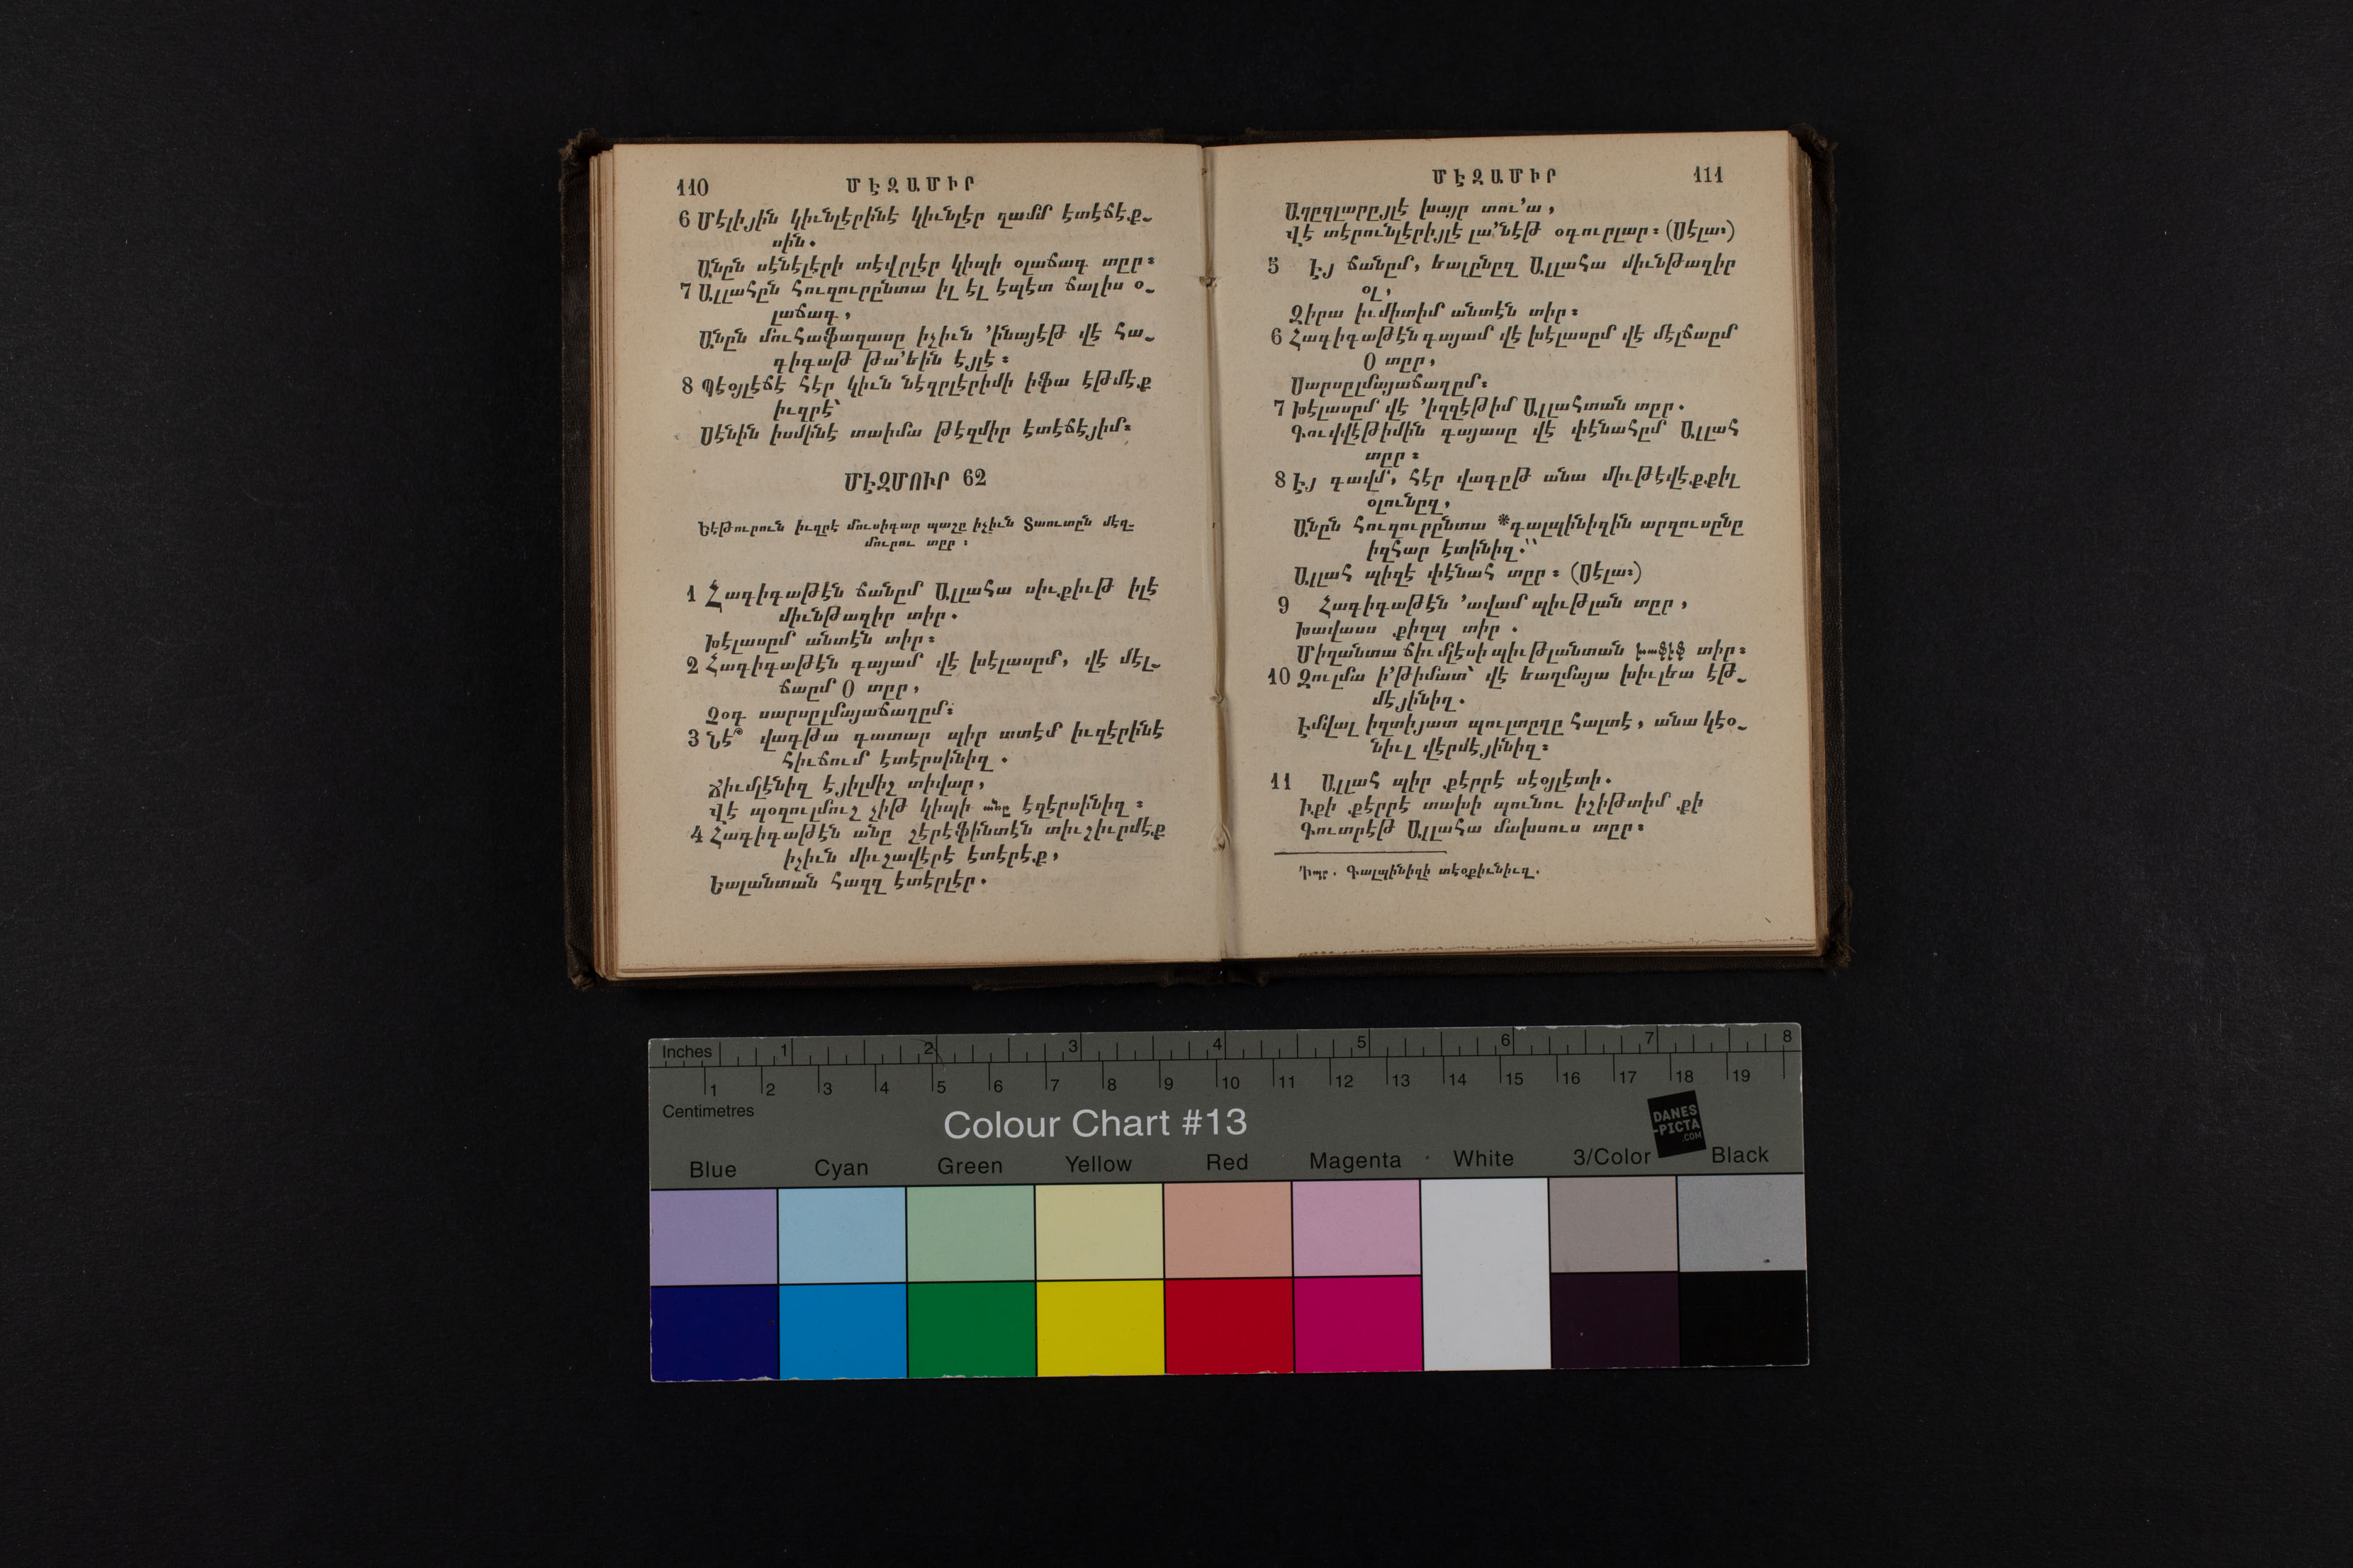 110 ՄԷԶԱՄԻՐ
6 Մէլիյին կիւնլէրինէ կիւնլէր զամմ էտէճէք֊
սին.
Անըն սէնէլէրի տէվրլէր կիպի օլաճագ տըր։
7 Ալլահըն հուզուրընտա իլ էլ էպէտ ճալիս օ֊
լաճագ,
Անըն մուհաֆազասը իչիւն ՚ինայէթ վէ հա֊
գիգաթ թա՚եին էյլէ։
8 Պէօյլէճէ հէր կիւն նէզրլէրիմի իֆա էթմէք
իւզրէ՝
Սէնին իսմինէ տաիմա թէզմիր էտէճէյիմ։
ՄԷԶՄՈՒՐ 62
Եէթուրուն իւզրէ մուսիգար պաշը իչիւն Տաուտըն մէզ֊
մուրու տըր։
1 Հագիգաթէն ճանըմ Ալլահա սիւքիւթ իլէ
միւնթազիր տիր.
Խէլասըմ անտէն տիր։
2 Հագիգաթէն գայամ վէ խէլասըմ, վէ մէլ֊
ճաըմ Օ տըր,
Չօգ սարսըլմայաճաղըմ։
3 Նէ՞ վագթա գատար պիր ատէմ իւզէրինէ
հիւճում էտէրսինիզ.
Ճիւմլէնիզ էյիլմիշ տիվար,
Վէ պօզուլմուշ չիթ կիպի անը եզէրսինիզ։
4 Հագիգաթէն անը շէրէֆինտէն տիւշիւրմէք
իչիւն միւշավէրէ էտէրէք,
Եալանտան հազզ էտէրլէր.
ՄԷԶԱՄԻՐ 111
Աղըզլարըյլէ խայր տու՚ա,
Վէ տէրունլէրիյլէ լա՚նէթ օգուրլար։ (Սէլա։)
5 Էյ ճանըմ, եալընըզ Ալլահա միւնթազիր
օլ,
Զիրա իւմիտիմ անտէն տիր։
6 Հագիգաթէն գայամ վէ խէլասըմ վէ մէլճաըմ
Օ տըր,
Սարսըլմայաճաղըմ։
7 Խէլասըմ վէ ՚իզզէթիմ Ալլահտան տըր.
Գուվվէթիմին գայասը վէ փէնահըմ Ալլահ
տըր։
8 Էյ գավմ, հէր վագըթ անա միւթէվէքքիլ
օլունըզ,
Անըն հուզուրընտա *գալպինիզին արզուսընը
իզհար էտինիզ.՝՝
Ալլահ պիզէ փէնահ տըր։ (Սէլա։)
9 Հագիգաթէն ՚ավամ պիւթլան տըր,
Խավասս քիզպ տիր.
Միզանտա ճիւմլէսի պիւթլանտան խաֆիֆ տիր։
10 Զուլմա ի՚թիմատ՝ վէ եաղմայա խիւլեա էթ֊
մէյինիզ.
Էմվալ իզտիյատ պուլտըղը հալտէ, անա կէօ֊
նիւլ վէրմէյինիզ։
11 Ալլահ պիր քէրրէ սէօյլէտի.
Իքի քէրրէ տախի պունու իշիթտիմ քի
Գուտրէթ Ալլահա մախսուս տըր։
Գալպինիզի տէօքիւնիւզ.
Inches 1 2 3 4 5 6 7 8
1 2 3 4 5 6 7 8 9 10 11 12 13 14 15 16 17 18 19
Centimetres
Colour Chart #13
DANES
-PICTA
.COM
Blue Cyan Green Yellow Red Magenta White 3/Color Black